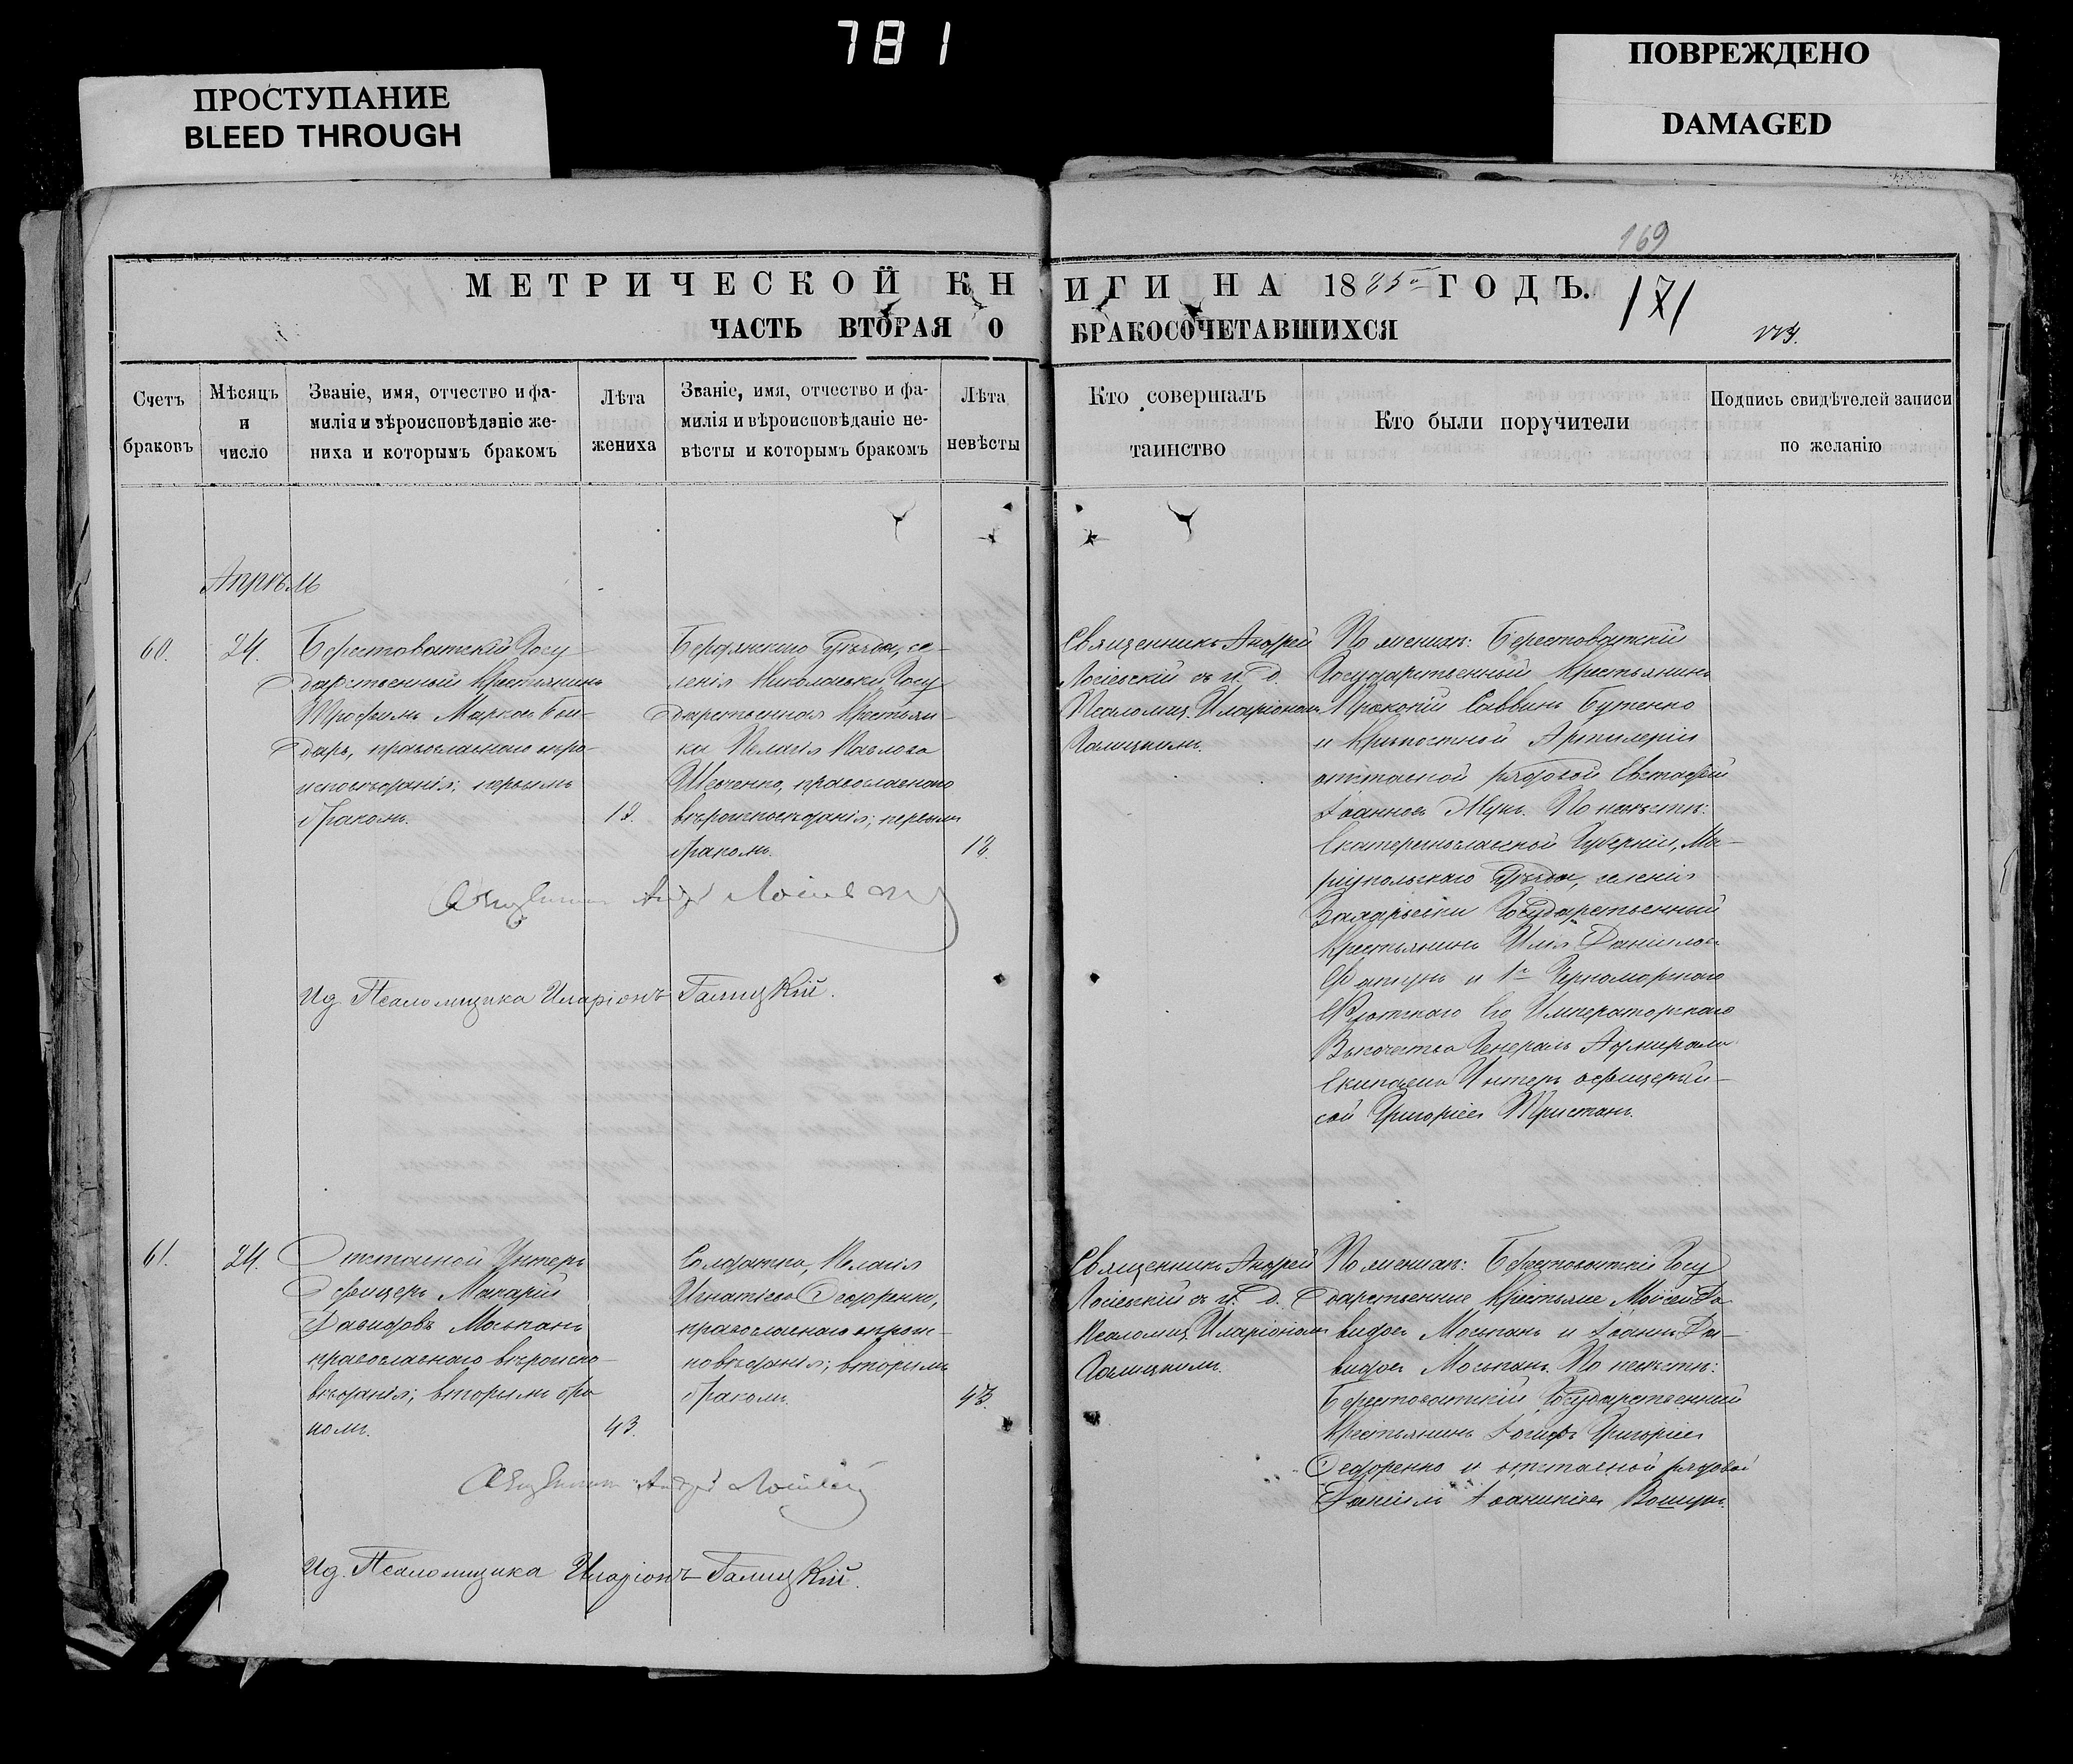 781
ПРОСТУПАНИЕ
BLEED THROUGH
ПОВРЕЖДЕНО
DAMAGED
169
МЕТРИЧЕСКОЙ КНИГИ НА 1885 ГОДЪ.
171
ЧАСТЬ ВТОРАЯ О БРАКОСОЧЕТАВШИХСЯ
Счетъ браковъ
Мѣсяцъ и число
Званіе, имя, отчество и фамилія и вѣроисповѣданіе жениха и которымъ бракомъ
Лѣта жениха
Званіе, имя, отчество и фамилія и вѣроисповѣданіе невѣсты и которымъ бракомъ
Лѣта невѣсты
Кто совершалъ таинство
Кто были поручители
Подпись свидѣтелей записи по желанію
Апрѣль
60.
24.
Берестоватскій Госу-
дарственный Крестьянинъ
Трофимъ Марковъ Бон-
дарь, православнаго вѣро-
исповѣданія; первымъ
бракомъ.
Бердянскаго Уѣзда, се-
ленія Николаевки Госу
дарственная Крестьян-
ка Пелагія Павлова
Шевченко, православнаго
вѣроисповѣданія; первымъ
бракомъ.
Священникъ Андрей
Лосіевскій съ и. д.
Псаломщ. Иларіономъ
Галицкимъ.
По женихѣ: Берестоватскій
Государственный Крестьянинъ
Прокопій Саввинъ Бутенко
и Крѣпостной Артилеріи
отставной рядовой Евстафій
Іоанновъ Мунъ. По невѣстѣ:
Екатеринославской Губерніи, Ма-
ріупольскаго Уѣзда, селенія
Захарьевки Государственный
Крестьянинъ Илія Даніиловъ
и 1го Черноморскаго
Флотскаго Его Императорскаго
Высочества Генералъ Адмирала
Екипажа Унтеръ офицерскій
сынъ Григоріевъ
Священникъ Андрей Лосіевскій
Ид. Псаломщика Иларіонъ Галицкій.
61.
24.
Отставной Унтеръ
Офицеръ Макарій
Давидовъ Моспанъ
православнаго вѣроиспо-
вѣданія; вторымъ бра
комъ.
43.
Солдатка, Пелагія
Игнатіева Федоренко,
православнаго вѣроис-
повѣданія; вторымъ
бракомъ.
43.
Священникъ Андрей
Лосіевскій съ и. д.
Псаломщ. Иларіономъ
Галицкимъ.
По женихѣ: Берестоватскіе Госу
дарственные Крестьяне Моисей Да
видовъ Моспанъ и Іоаннъ Да-
видовъ Моспанъ. По невѣстѣ:
Берестоватскій Государственный
Крестьянинъ Іосифъ Григоріевъ
Федоренко и отставной рядовой
Даніилъ Іоанникіевъ
Священникъ Андрей Лосіевскій
Ид. Псаломщика Иларіонъ Галицкій.